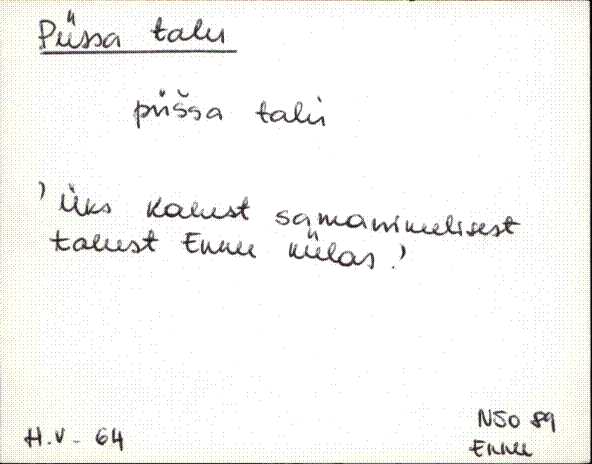 Püssa talu
püšsa talù
'Üks kahest samanimelisest
talust Ennu külas.'
H.V - 64
NSO 89
Ennu